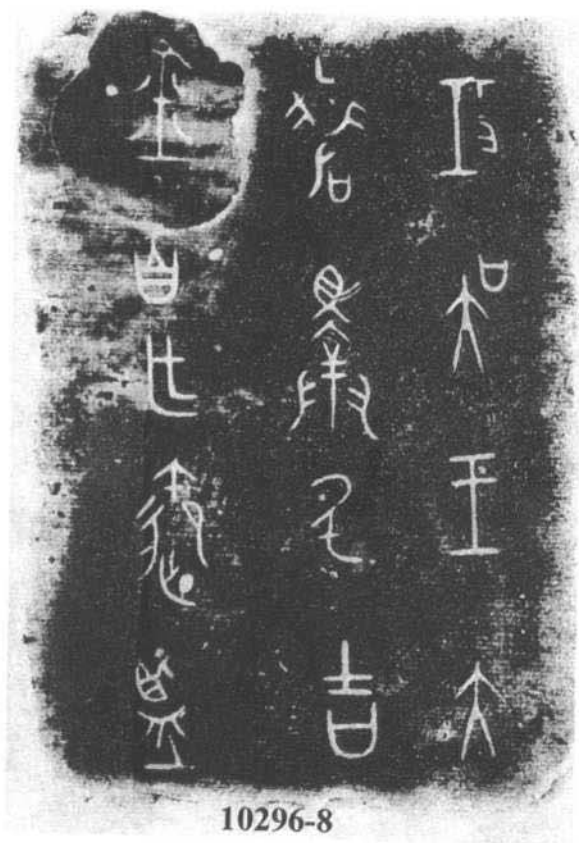 攻吳王大
差擇氒吉
金自乍御監
10296-8